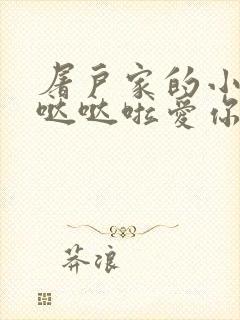 屠户家的小
哒哒啦爱你
莽浪